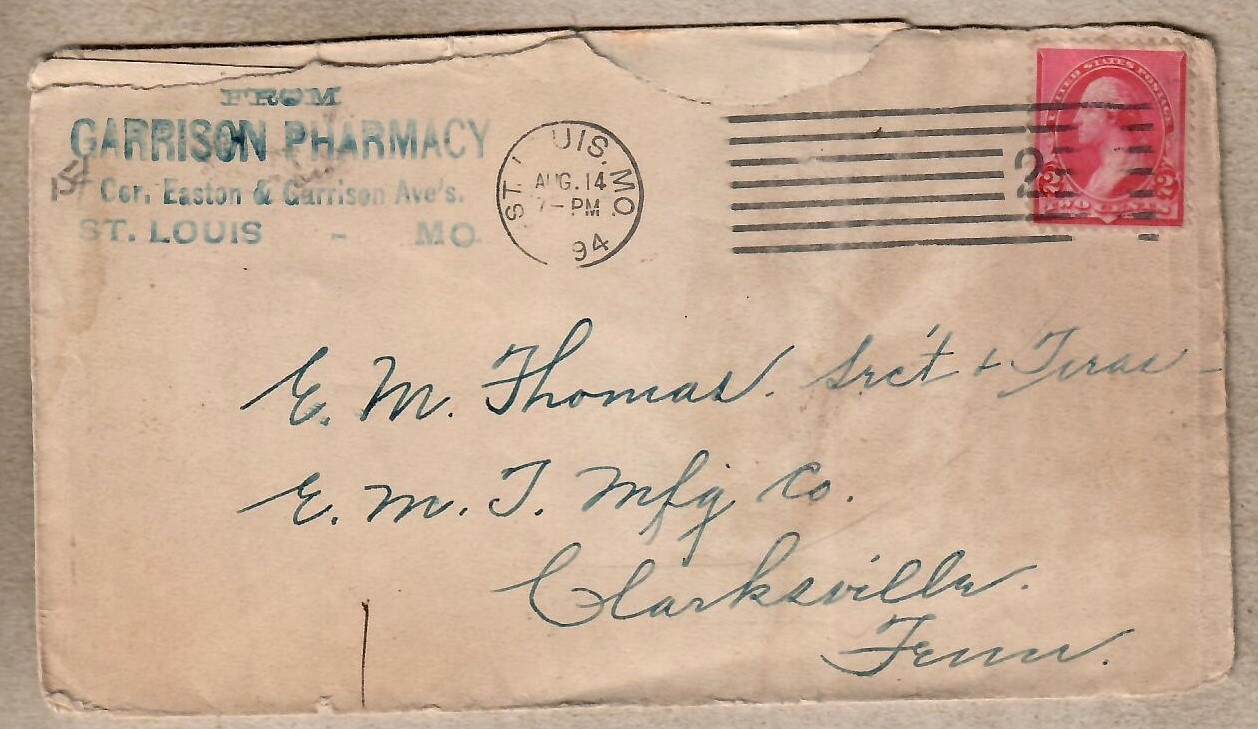 FROM
GARRISON PHARMACY
Cor. Easton & Garrison Ave's.
ST. LOUIS - MO
ST. L UIS. MO.
AUG. 14
7-PM
94
2
UNITED STATES POSTAGE
2 2
TWO CENTS
E. M. Thomas. Sect & Treas -
E. M. T. Mfg Co.
Clarksville.
Tenn.